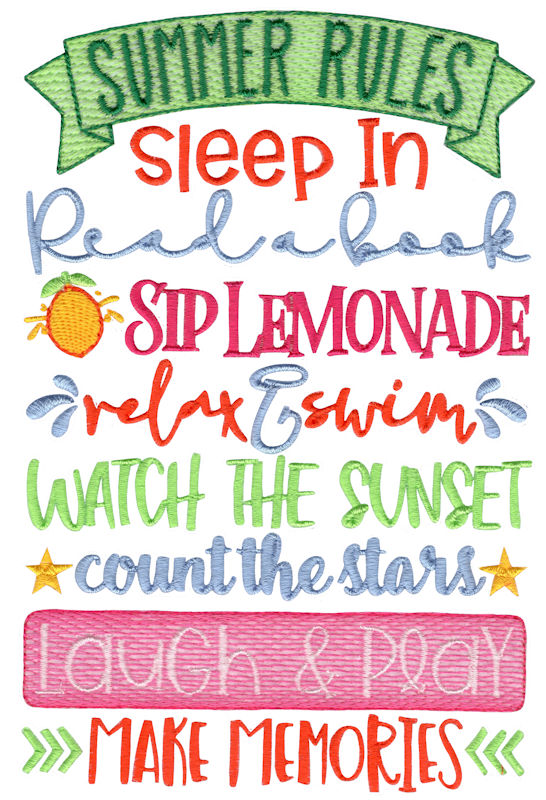 SUMMER RULES
Sleep In
Read a book
SIP LEMONADE
relax & swim
WATCH THE SUNSET
count the stars
LaugH & PLAY
MAKE MEMORIES